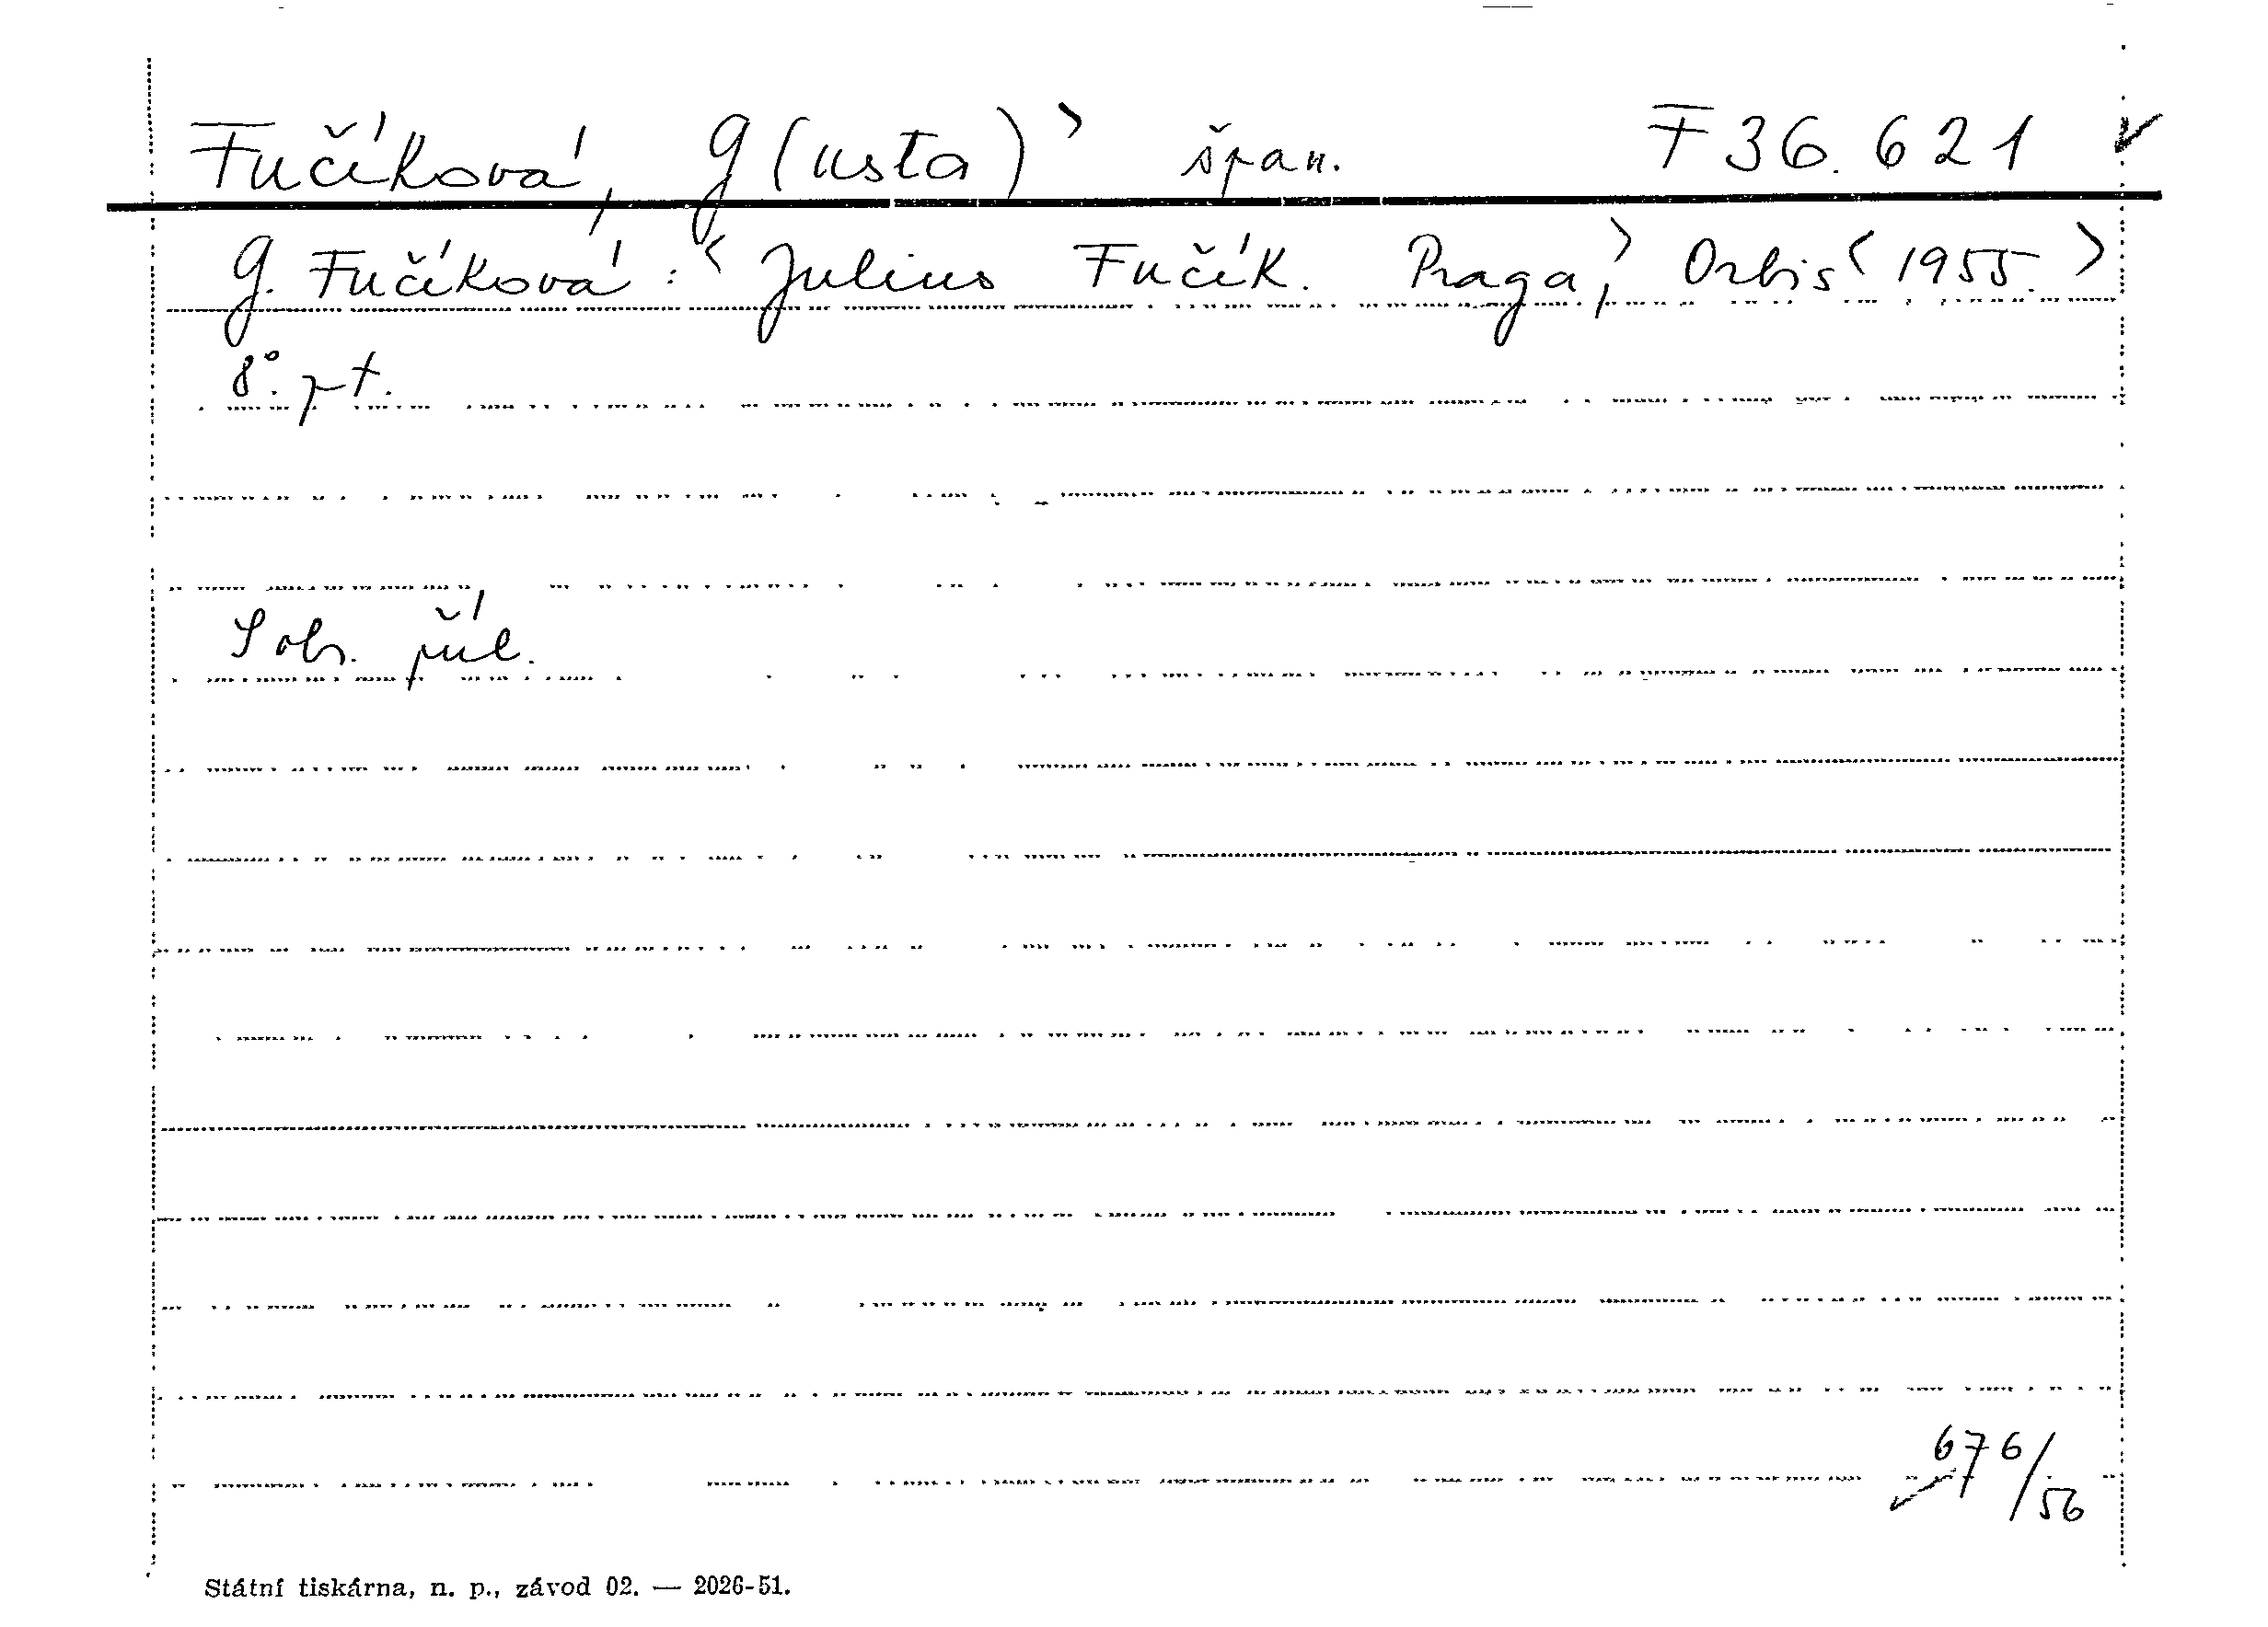 Fučíková, G(usta)> špan. F 36.621
G. Fučíková: <Julius Fučík. Praga,> Orbis <1955.>
8°. pt.
S obr. příl.
676/56
Státní tiskárna, n. p., závod 02. — 2026-51.